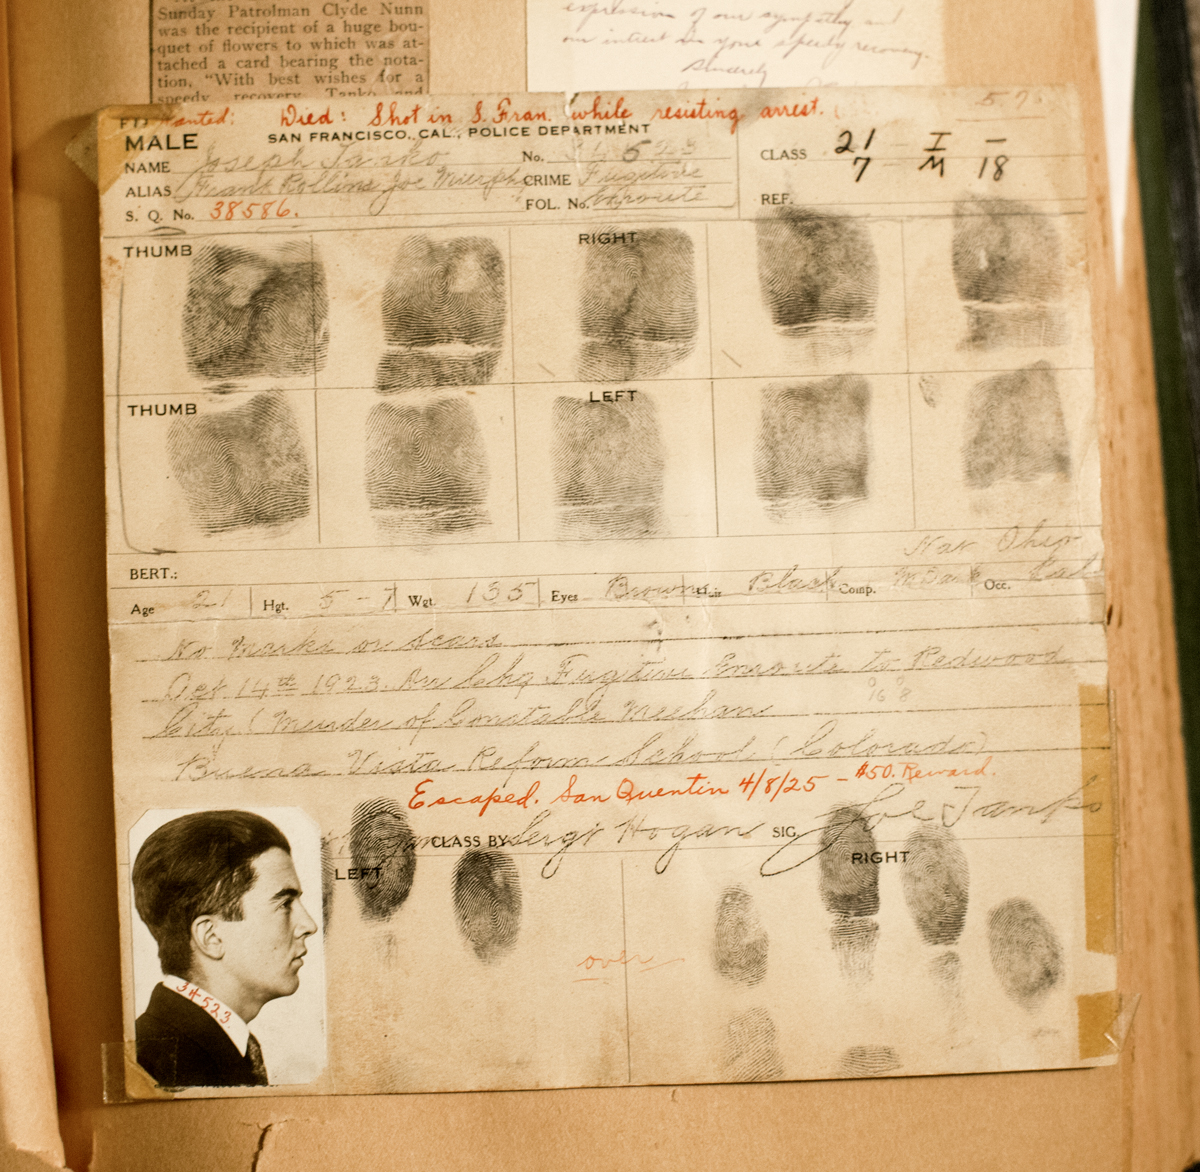 Sunday Patrolman Clyde Nunn
was the recipient of a huge bou-
quet of flowers to which was at-
tached a card bearing the nota-
tion, "With best wishes for a
speedy recovery. Tanko and
expression of our sympathy and
our intrest in your speedy recovery.
Sincerely
Wanted: Died: Shot in S. Fran. while resisting arrest.
MALE SAN FRANCISCO, CAL., POLICE DEPARTMENT
NAME Joseph Tanko No. 34523
ALIAS Frank Rollins Joe Murphy CRIME Fugitive
S. Q. No. 38586. FOL. No. Enroute
CLASS 21 I -
7 M 18
REF.
THUMB RIGHT
THUMB LEFT
Nat Ohio
BERT.:
Age 21 Hgt. 5-7 Wgt. 135 Eyes Brown Hair Black Comp. M Dark Occ.
No Marks or Scars
Oct 14th 1923. Fugitive Enroute to Redwood
City (Murder of Constable Meehan
Buena Vista Reform School (Colorado)
Escaped. San Quentin 4/8/25 - $50. Reward.
CLASS BY Sergt Hogan SIG. Joe Tanko
LEFT RIGHT
over
34523